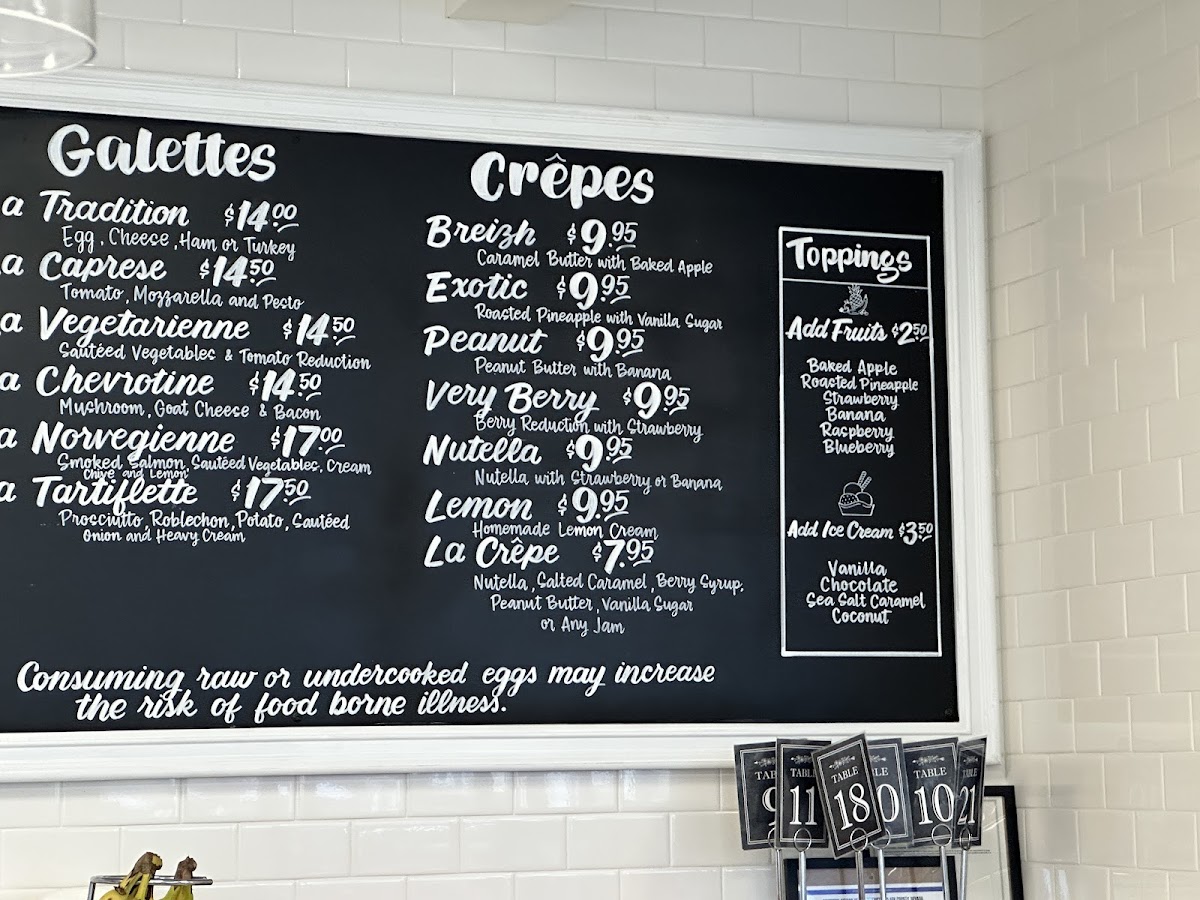 Galettes
a Tradition $14.00
Egg, Cheese, Ham or Turkey
a Caprese $14.50
Tomato, Mozzarella and Pesto
a Vegetarienne $14.50
Sautéed Vegetables & Tomato Reduction
a Chevrotine $14.50
Mushroom, Goat Cheese & Bacon
a Norvegienne $17.00
Smoked Salmon, Sautéed Vegetables, Cream
Chive and Lemon
a Tartiflette $17.50
Prosciutto, Roblechon, Potato, Sautéed
Onion and Heavy Cream
Crêpes
Breizh $9.95
Caramel Butter with Baked Apple
Exotic $9.95
Roasted Pineapple with Vanilla Sugar
Peanut $9.95
Peanut Butter with Banana
Very Berry $9.95
Berry Reduction with Strawberry
Nutella $9.95
Nutella with Strawberry or Banana
Lemon $9.95
Homemade Lemon Cream
La Crêpe $7.95
Nutella, Salted Caramel, Berry Syrup,
Peanut Butter, Vanilla Sugar
or Any Jam
Toppings
Add Fruits $2.50
Baked Apple
Roasted Pineapple
Strawberry
Banana
Raspberry
Blueberry
Add Ice Cream $3.50
Vanilla
Chocolate
Sea Salt Caramel
Coconut
Consuming raw or undercooked eggs may increase
the risk of food borne illness.
TAB
TABL
11
TABLE
18
LE
0
TABLE
10
TABLE
21